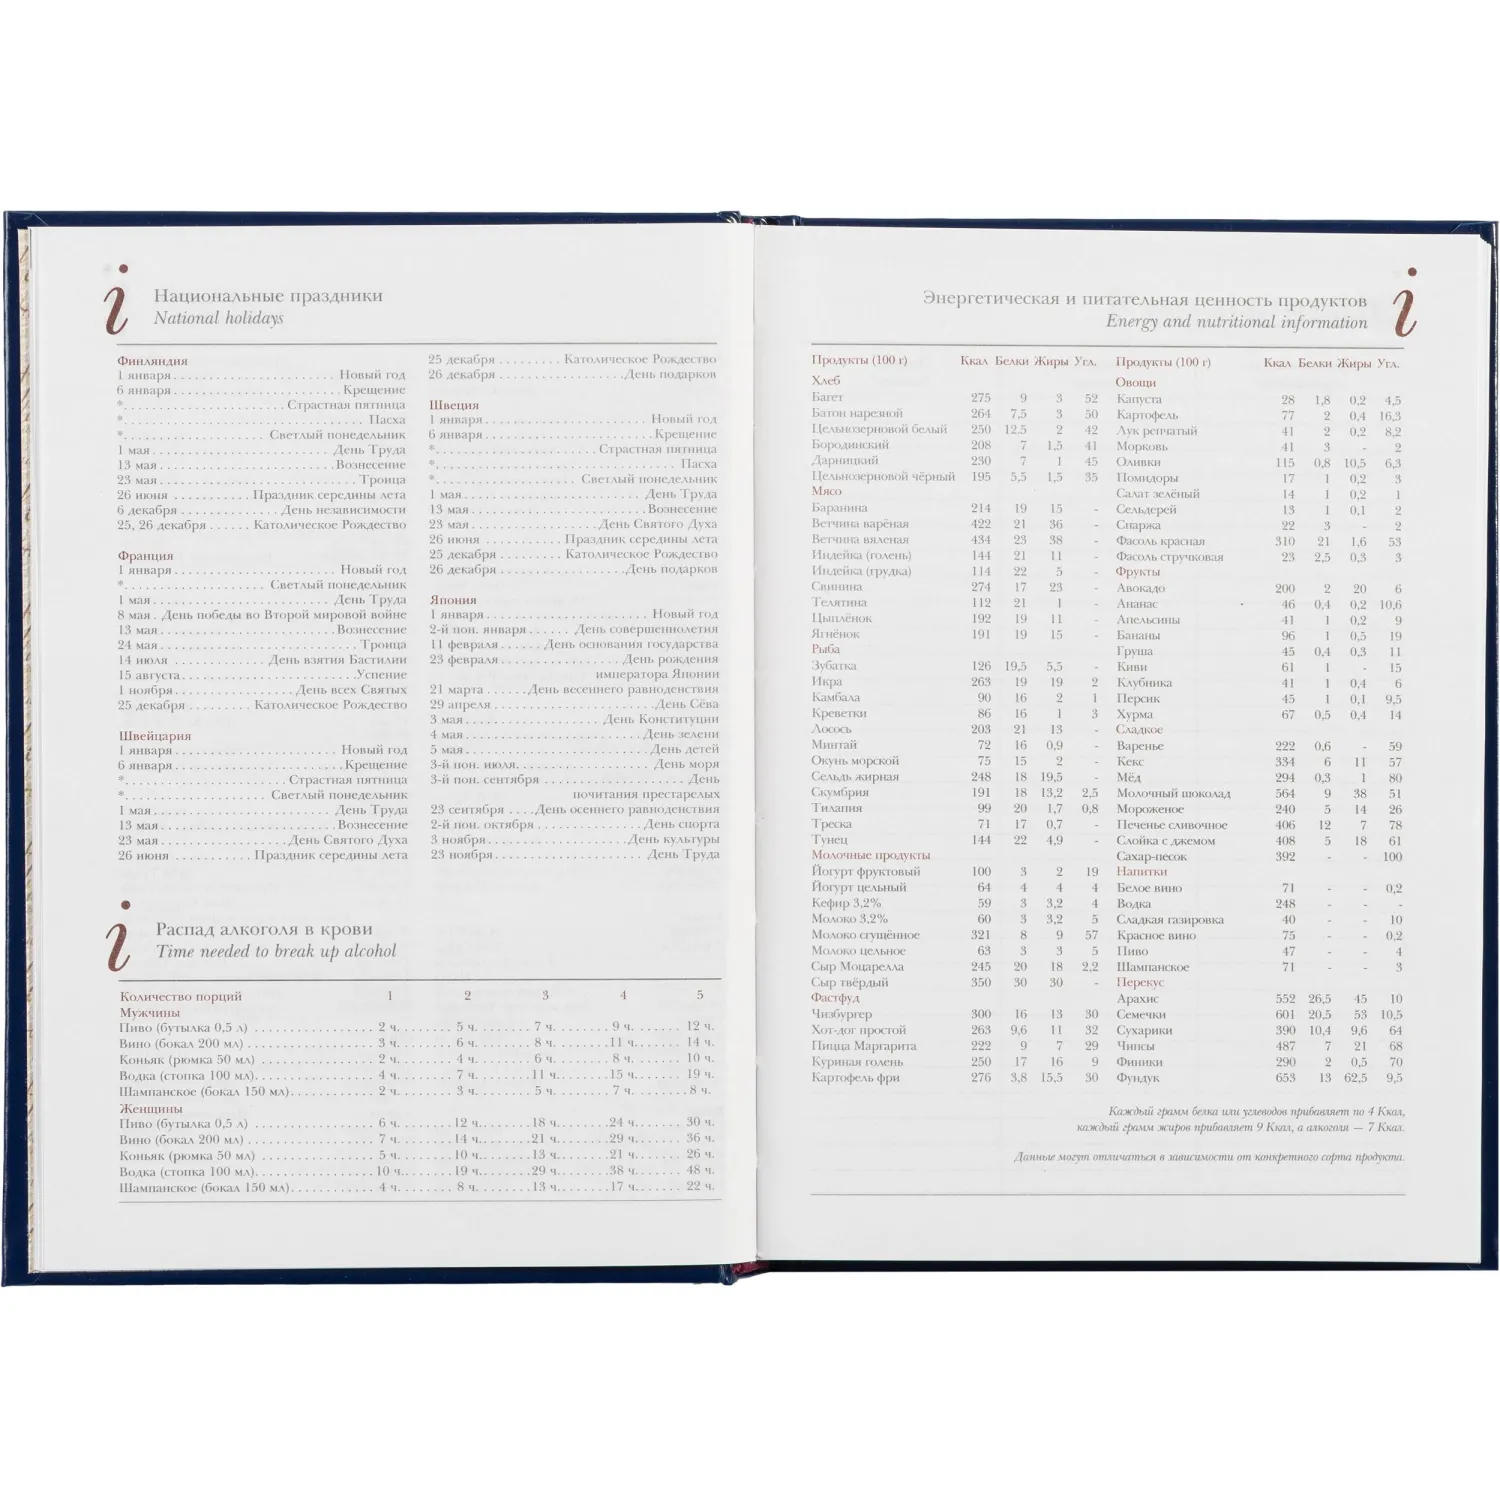 i
Национальные праздники
National holidays
Финляндия
1 января ........ Новый год
6 января ........ Крещение
* ........ Страстная пятница
* ........ Пасха
* ........ Светлый понедельник
1 мая ........ День Труда
13 мая ........ Вознесение
23 мая ........ Троица
26 июня ........ Праздник середины лета
6 декабря ........ День независимости
25, 26 декабря ...... Католическое Рождество
Франция
1 января ........ Новый год
* ........ Светлый понедельник
1 мая ........ День Труда
8 мая . День победы во Второй мировой войне
13 мая ........ Вознесение
24 мая ........ Троица
14 июля ........ День взятия Бастилии
15 августа ........ Успение
1 ноября ........ День всех Святых
25 декабря ........ Католическое Рождество
Швейцария
1 января ........ Новый год
6 января ........ Крещение
* ........ Страстная пятница
* ........ Светлый понедельник
1 мая ........ День Труда
13 мая ........ Вознесение
23 мая ........ День Святого Духа
26 июня ........ Праздник середины лета
25 декабря ........ Католическое Рождество
26 декабря ........ День подарков
Швеция
1 января ........ Новый год
6 января ........ Крещение
* ........ Страстная пятница
* ........ Пасха
* ........ Светлый понедельник
1 мая ........ День Труда
13 мая ........ Вознесение
23 мая ........ День Святого Духа
26 июня ........ Праздник середины лета
25 декабря ........ Католическое Рождество
26 декабря ........ День подарков
Япония
1 января ........ Новый год
2-й пон. января ...... День совершеннолетия
11 февраля ...... День основания государства
23 февраля ........ День рождения
императора Японии
21 марта ...... День весеннего равноденствия
29 апреля ........ День Сёва
3 мая ........ День Конституции
4 мая ........ День зелени
5 мая ........ День детей
3-й пон. июля ........ День моря
3-й пон. сентября ........ День
почитания престарелых
23 сентября .... День осеннего равноденствия
2-й пон. октября ........ День спорта
3 ноября ........ День культуры
23 ноября ........ День Труда
i
Распад алкоголя в крови
Time needed to break up alcohol
Количество порций 1 2 3 4 5
Мужчины
Пиво (бутылка 0,5 л) ..... 2 ч. ..... 5 ч. ..... 7 ч. ..... 9 ч. ..... 12 ч.
Вино (бокал 200 мл) ..... 3 ч. ..... 6 ч. ..... 8 ч. ..... 11 ч. ..... 14 ч.
Коньяк (рюмка 50 мл) ..... 2 ч. ..... 4 ч. ..... 6 ч. ..... 8 ч. ..... 10 ч.
Водка (стопка 100 мл) ..... 4 ч. ..... 7 ч. ..... 11 ч. ..... 15 ч. ..... 19 ч.
Шампанское (бокал 150 мл) ..... 2 ч. ..... 3 ч. ..... 5 ч. ..... 7 ч. ..... 8 ч.
Женщины
Пиво (бутылка 0,5 л) ..... 6 ч. ..... 12 ч. ..... 18 ч. ..... 24 ч. ..... 30 ч.
Вино (бокал 200 мл) ..... 7 ч. ..... 14 ч. ..... 21 ч. ..... 29 ч. ..... 36 ч.
Коньяк (рюмка 50 мл) ..... 5 ч. ..... 10 ч. ..... 13 ч. ..... 21 ч. ..... 26 ч.
Водка (стопка 100 мл) ..... 10 ч. ..... 19 ч. ..... 29 ч. ..... 38 ч. ..... 48 ч.
Шампанское (бокал 150 мл) ..... 4 ч. ..... 8 ч. ..... 13 ч. ..... 17 ч. ..... 22 ч.
Энергетическая и питательная ценность продуктов
Energy and nutritional information
i
Продукты (100 г) Ккал Белки Жиры Угл.
Хлеб
Багет 275 9 3 52
Батон нарезной 264 7,5 3 50
Цельнозерновой белый 250 12.5 2 42
Бородинский 208 7 1,5 41
Дарницкий 230 7 1 45
Цельнозерновой чёрный 195 5,5 1,5 35
Мясо
Баранина 214 19 15 -
Ветчина варёная 422 21 36 -
Ветчина вяленая 434 23 38 -
Индейка (голень) 144 21 11 -
Индейка (грудка) 114 22 5 -
Свинина 274 17 23 -
Телятина 112 21 1 -
Цыплёнок 192 19 11 -
Ягнёнок 191 19 15 -
Рыба
Зубатка 126 19,5 5,5 -
Икра 263 19 19 2
Камбала 90 16 2 1
Креветки 86 16 1 3
Лосось 203 21 13 -
Минтай 72 16 0,9 -
Окунь морской 75 15 2 -
Сельдь жирная 248 18 19,5 -
Скумбрия 191 18 13,2 2,5
Тилапия 99 20 1,7 0,8
Треска 71 17 0,7 -
Тунец 144 22 4,9 -
Молочные продукты
Йогурт фруктовый 100 3 2 19
Йогурт цельный 64 4 4 4
Кефир 3,2% 59 3 3,2 4
Молоко 3,2% 60 3 3,2 5
Молоко сгущённое 321 8 9 57
Молоко цельное 63 3 3 5
Сыр Моцарелла 245 20 18 2,2
Сыр твёрдый 350 30 30 -
Фастфуд
Чизбургер 300 16 13 30
Хот-дог простой 263 9,6 11 32
Пицца Маргарита 222 9 7 29
Куриная голень 250 17 16 9
Картофель фри 276 3,8 15,5 30
Продукты (100 г) Ккал Белки Жиры Угл.
Овощи
Капуста 28 1,8 0,2 4,5
Картофель 77 2 0,4 16,3
Лук репчатый 41 2 0,2 8,2
Морковь 41 3 - 2
Оливки 115 0,8 10,5 6,3
Помидоры 17 1 0,2 3
Салат зелёный 14 1 0,2 1
Сельдерей 13 1 0,1 2
Спаржа 22 3 - 2
Фасоль красная 310 21 1,6 53
Фасоль стручковая 23 2,5 0,3 3
Фрукты
Авокадо 200 2 20 6
Ананас 46 0,4 0,2 10,6
Апельсины 41 1 0,2 9
Бананы 96 1 0,5 19
Груша 45 0,4 0,3 11
Киви 61 1 - 15
Клубника 41 1 0,4 6
Персик 45 1 0,1 9,5
Хурма 67 0,5 0,4 14
Сладкое
Варенье 222 0,6 - 59
Кекс 334 6 11 57
Мёд 294 0,3 1 80
Молочный шоколад 564 9 38 51
Мороженое 240 5 14 26
Печенье сливочное 406 12 7 78
Слойка с джемом 408 5 18 61
Сахар-песок 392 - - 100
Напитки
Белое вино 71 - - 0,2
Водка 248 - - -
Сладкая газировка 40 - - 10
Красное вино 75 - - 0,2
Пиво 47 - - 4
Шампанское 71 - - 3
Перекус
Арахис 552 26,5 45 10
Семечки 601 20,5 53 10,5
Сухарики 390 10,4 9,6 64
Чипсы 487 7 21 68
Финики 290 2 0,5 70
Фундук 653 13 62,5 9,5
Каждый грамм белка или углеводов прибавляет по 4 Ккал,
каждый грамм жиров прибавляет 9 Ккал, а алкоголя — 7 Ккал.
Данные могут отличаться в зависимости от конкретного сорта продукта.